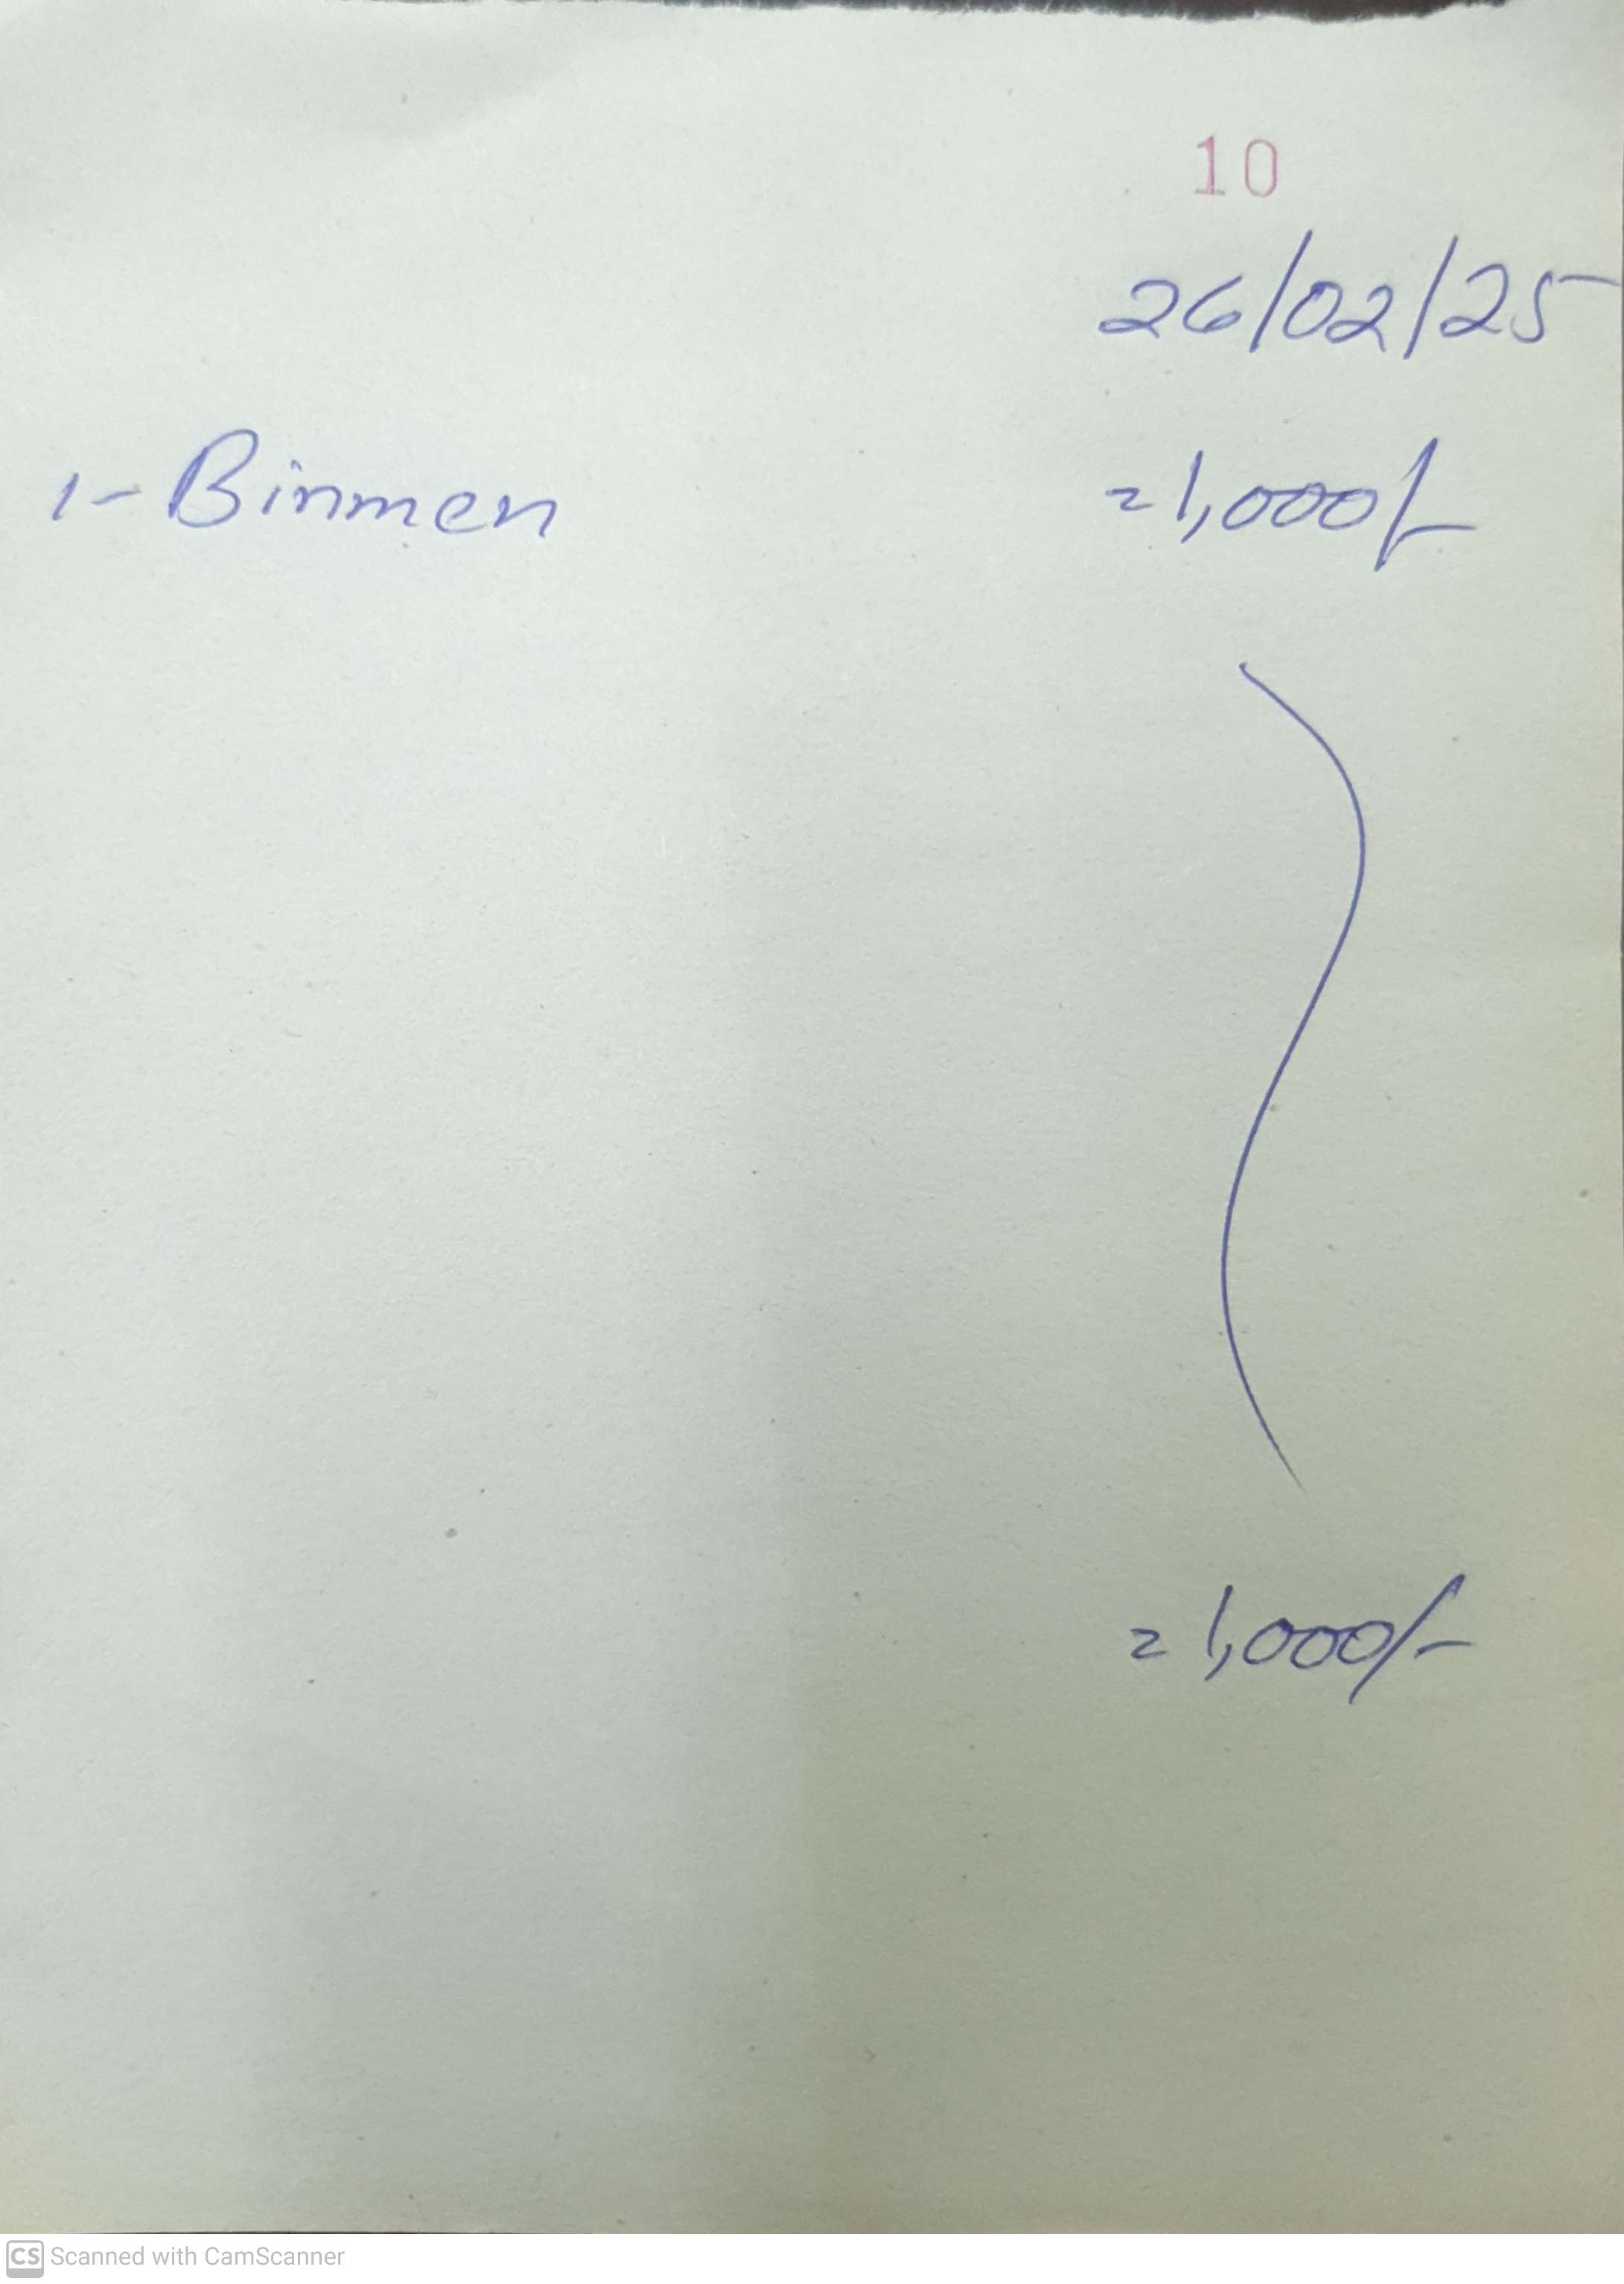 10
26/02/25
1- Binmen =1,000/-
=1,000/-
CS Scanned with CamScanner